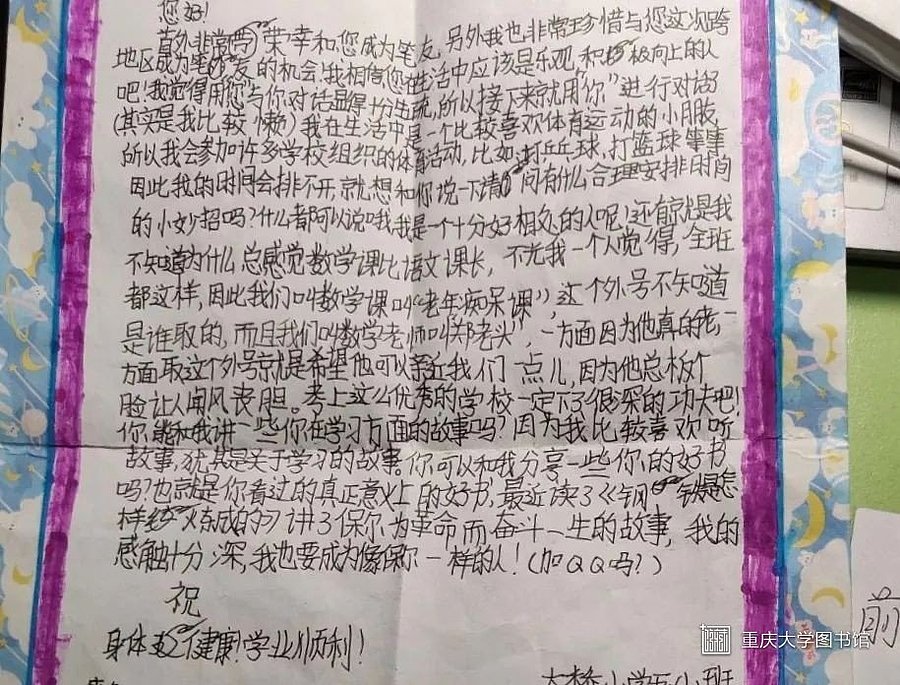 您好!
首先非常荣幸和您成为笔友,另外我也非常珍惜与您这次跨
地区成为笔友的机会!我相信您在生活中应该是乐观,积极向上的人
吧!我觉得用"您"与你对话显得十分生疏,所以接下来就用"你"进行对话
(其实是我比较懒)我在生活中是一个比较喜欢体育运动的小朋友
所以我会参加许多学校组织的体育活动,比如:打乒乓球,打篮球等等
因此我的时间会排不开,就想和你说一下请问有什么合理安排时间
的小妙招吗?什么都可以说哦,我是一个十分好相处的人呢!还有就是我
不知道为什么总感觉数学课比语文课长,不光我一个人觉得,全班
都这样,因此我们叫数学课叫"老年痴呆课",这个外号不知道
是谁取的,而且我们叫数学老师叫"邓老头",一方面因为他真的老,一
方面取这个外号就是希望他可以亲近我们一点儿,因为他总板个
脸让人闻风丧胆。考上这么优秀的学校一定下了很深的功夫吧!
你能和我讲一些你在学习方面的故事吗?因为我比较喜欢听
故事,犹其是关于学习的故事。你可以和我分享一些你的好书
吗?也就是你看过的真正意义上的好书,最近读了《钢铁是怎
样炼成的》讲了保尔为革命而奋斗一生的故事,我的
感触十分深,我也要成为像保尔一样的人!(加QQ吗?)
祝
身体健康!学业顺利!
小学五(1)班
前
重庆大学图书馆